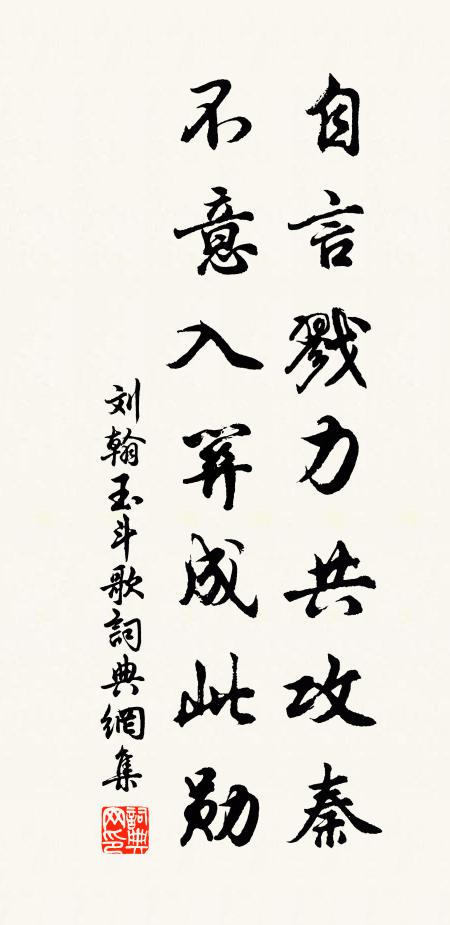 自言戮力共攻秦
不意入关成此勋
刘翰玉斗歌詞典網集
詞典網印